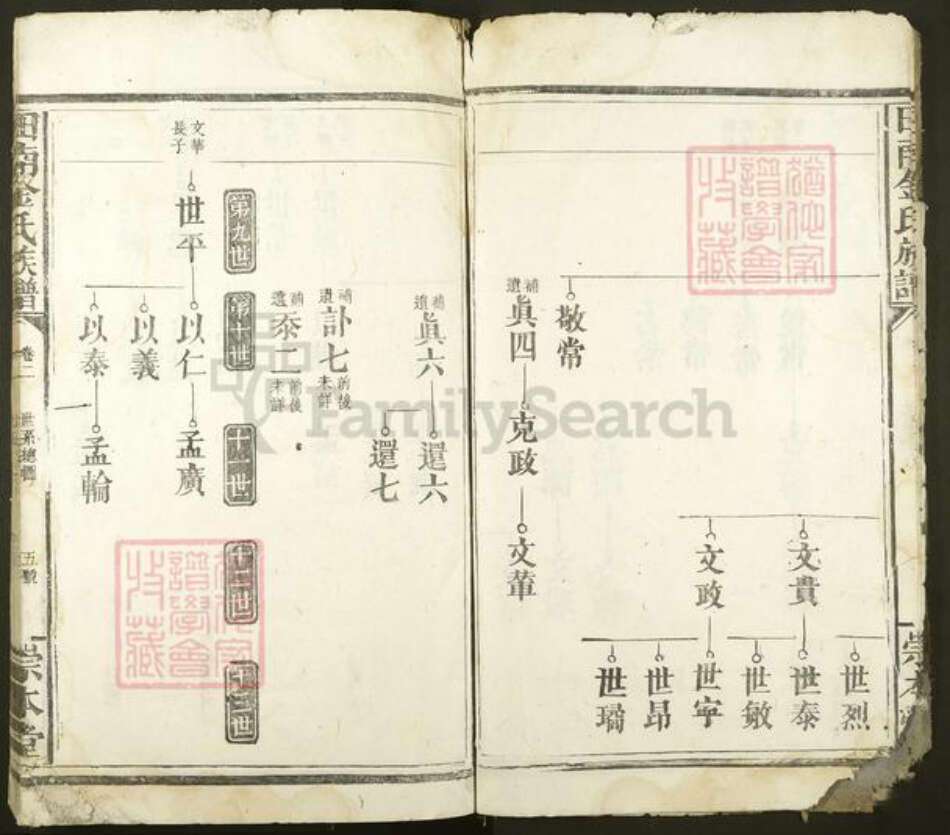 田南金氏族譜
崇本堂
敬常
補遺
眞四
克政
文葷
文貴
文政
世烈
世泰
世敏
世寕
世昂
世璚
補遺
眞六
還六
還七
補遺
訃七
前後未詳
補遺
泰二
前後未詳
第九世
第十世
十一世
十二世
十三世
文華長子
世平
以仁
以義
以泰
孟廣
孟輪
田南金氏族譜
卷二
世系總圖
五號
崇本堂
譜學會
收藏
譜學會
收藏
FamilySearch